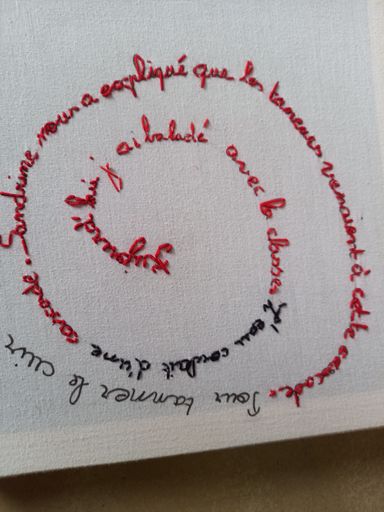 Aujourd'hui j'ai baladé avec la classe. L'eau coulait d'une cascade. Sandrine nous a expliqué que les tanneurs venaient à cette cascade. Pour tanner le cuir